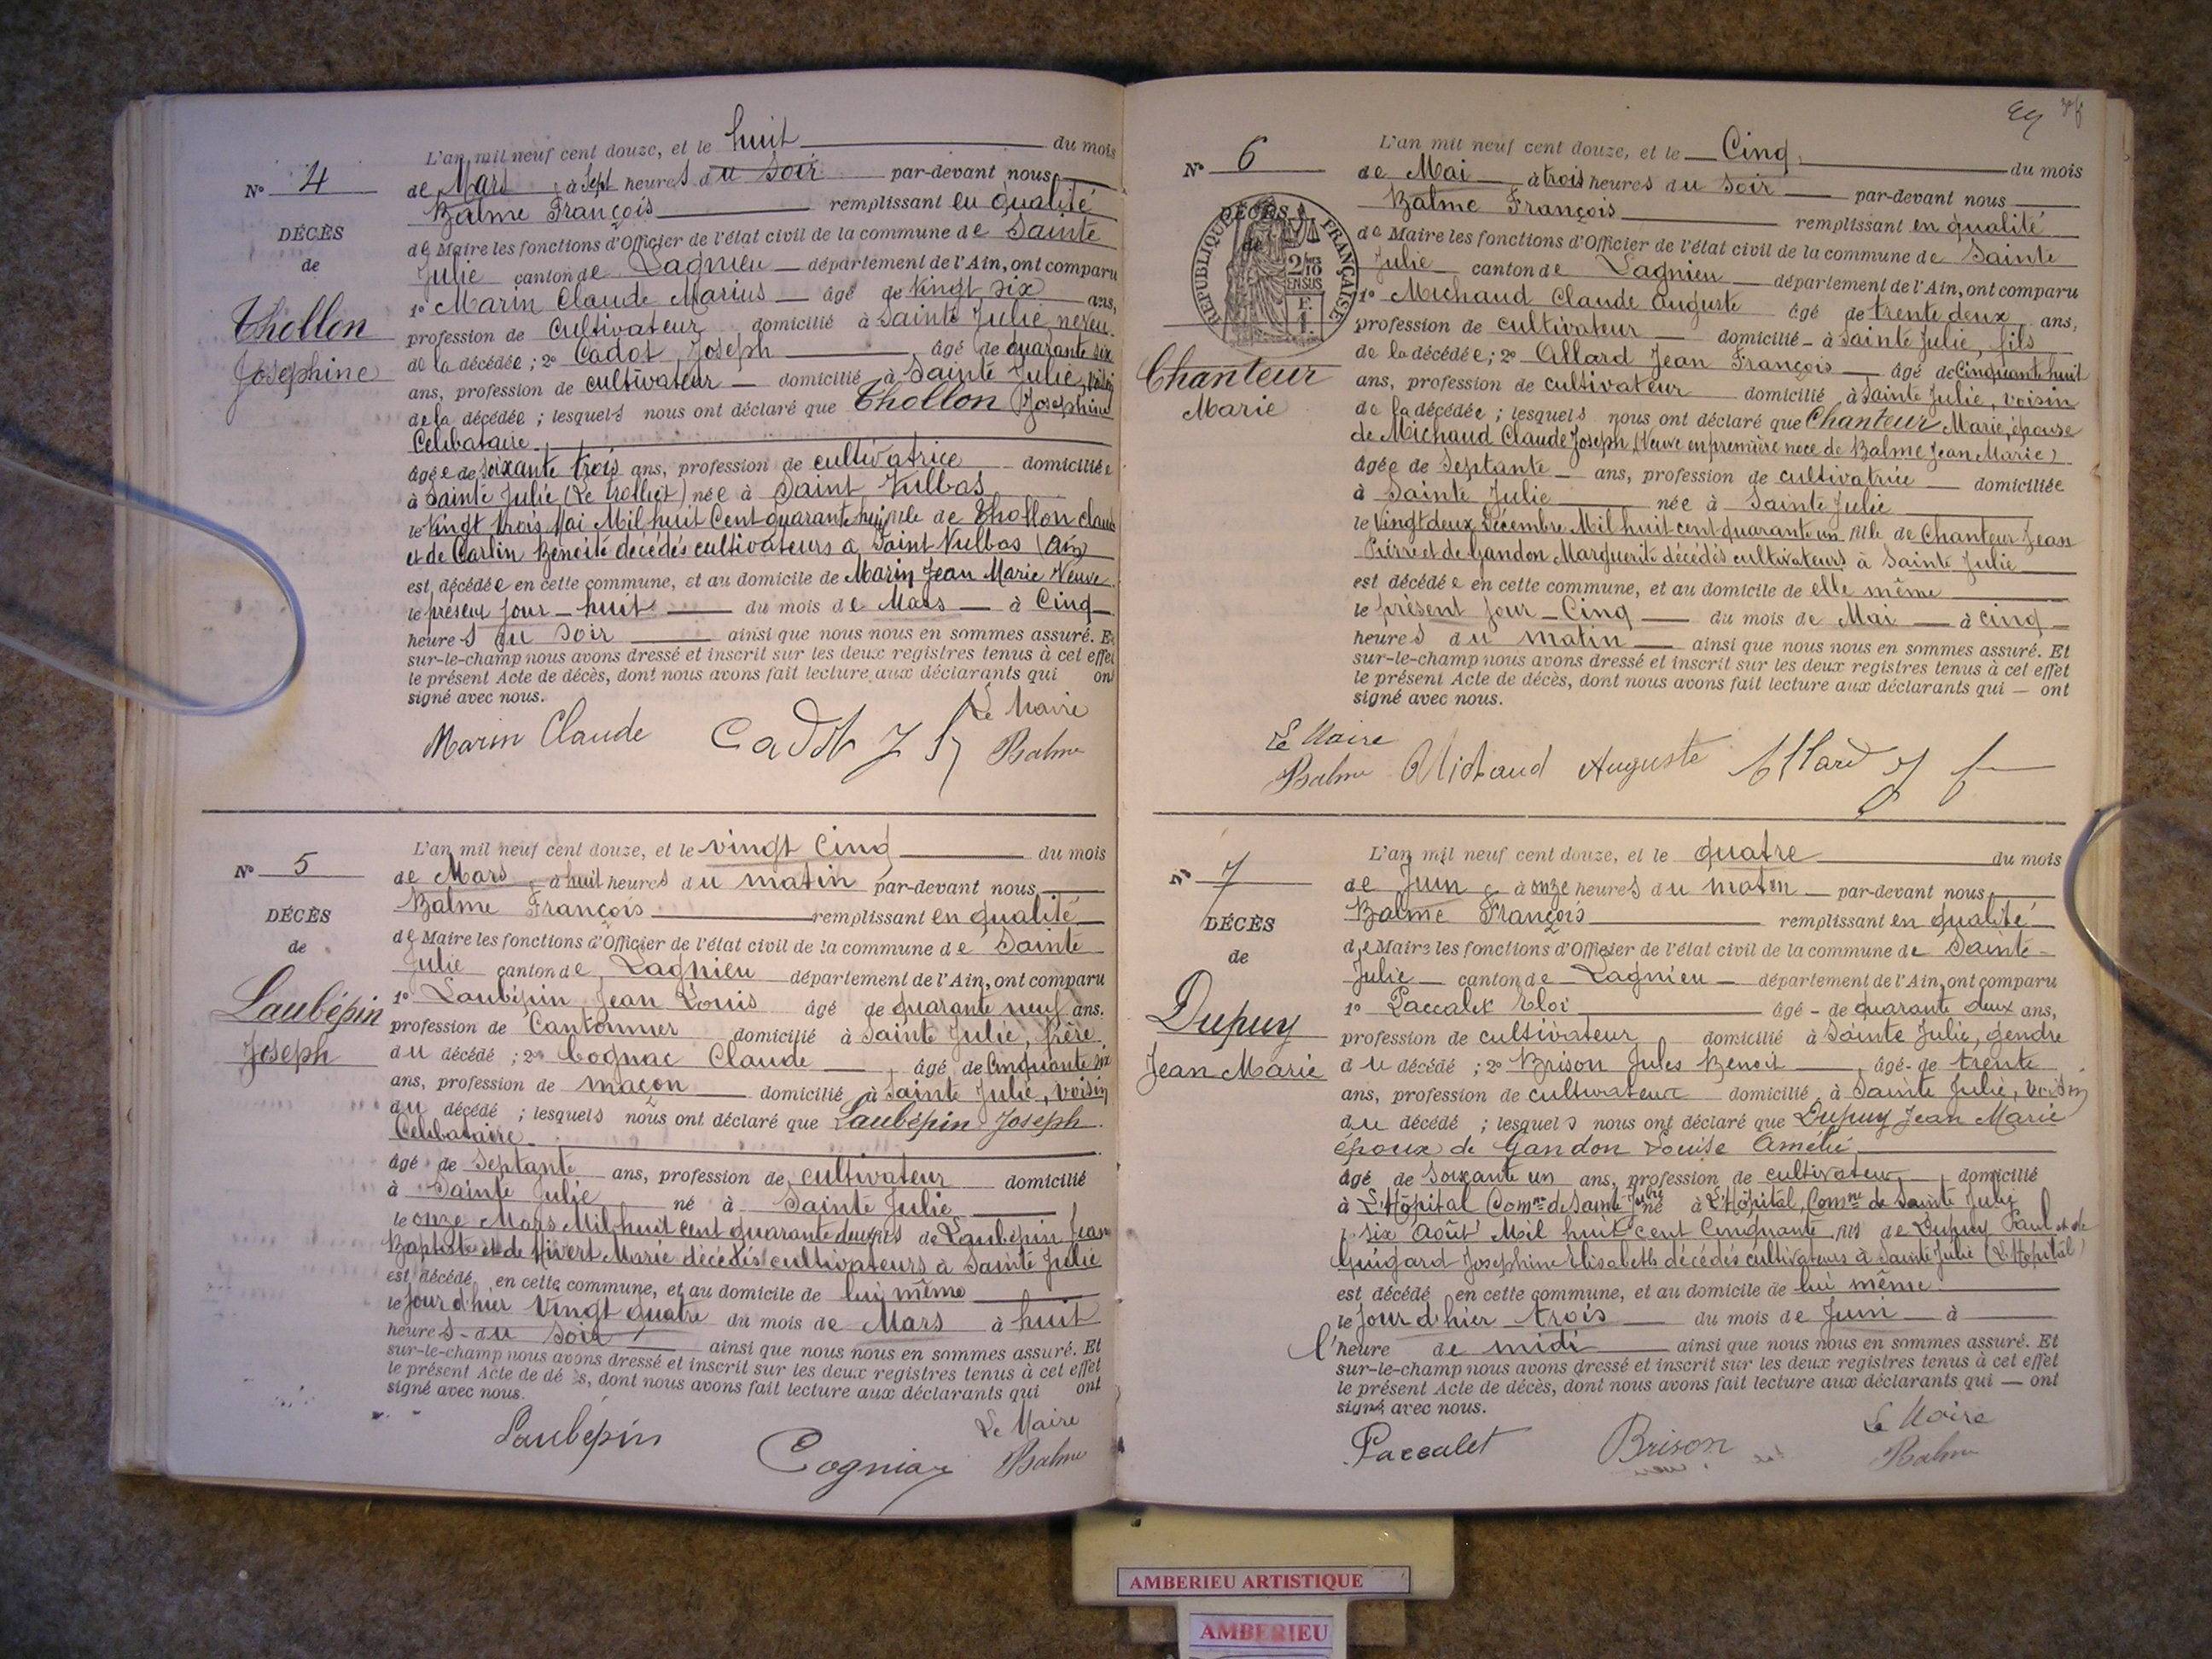 L'an mil neuf cent douze, et le huit du mois
N° 4
de Mars à Sept heures du Soir par-devant nous
Balme François remplissant en qualité
DÉCÈS
de Maire les fonctions d'Officier de l'état civil de la commune de Sainte
de
Julie canton de Lagnieu département de l'Ain, ont comparu
1° Marin Claude Marius âgé de Vingt six ans,
Thollon
profession de Cultivateur domicilié à Sainte Julie, neveu
Josephine
de la décédée; 2° Cadot Joseph âgé de quarante six
ans, profession de cultivateur domicilié à Sainte Julie, voisin
de la décédée; lesquels nous ont déclaré que Thollon Josephine
Célibataire
âgée de soixante trois ans, profession de cultivatrice domiciliée
à Sainte Julie (Le Trolliet) née à Saint Vulbas
le Vingt trois Mai Mil huit Cent quarante huit fille de Thollon Claude
et de Carlin Benoite décédés cultivateurs à Saint Vulbas (Ain)
est décédée en cette commune, et au domicile de Marin Jean Marie Veuve
le présent jour huit du mois de Mars à Cinq
heures du Soir ainsi que nous nous en sommes assuré. Et
sur-le-champ nous avons dressé et inscrit sur les deux registres tenus à cet effet
le présent Acte de décès, dont nous avons fait lecture aux déclarants qui ont
signé avec nous.
Le Maire
Marin Claude Cadot J Balme
L'an mil neuf cent douze, et le vingt cinq du mois
N° 5
de Mars à huit heures du matin par-devant nous
Balme François remplissant en qualité
DÉCÈS
de Maire les fonctions d'Officier de l'état civil de la commune de Sainte
de
Julie canton de Lagnieu département de l'Ain, ont comparu
1° Laubépin Jean Louis âgé de quarante neuf ans.
Laubépin
profession de Cantonnier domicilié à Sainte Julie, frère
Joseph
du décédé; 2° Cognac Claude âgé de Cinquante six
ans, profession de maçon domicilié à Sainte Julie, voisin
du décédé; lesquels nous ont déclaré que Laubépin Joseph
Célibataire
âgé de Septante ans, profession de cultivateur domicilié
à Sainte Julie né à Sainte Julie
le onze Mars Mil huit cent quarante deux fils de Laubépin Jean
Baptiste et de Hivert Marie décédés cultivateurs à Sainte Julie
est décédé en cette commune, et au domicile de lui même
le Jour d'hier Vingt quatre du mois de Mars à huit
heures du Soir ainsi que nous nous en sommes assuré. Et
sur-le-champ nous avons dressé et inscrit sur les deux registres tenus à cet effet
le présent Acte de décès, dont nous avons fait lecture aux déclarants qui ont
signé avec nous.
Le Maire
Laubépin Cogniaz Balme
L'an mil neuf cent douze, et le Cinq du mois
N° 6
de Mai à trois heures du Soir par-devant nous
Balme François remplissant en qualité
DÉCÈS
de Maire les fonctions d'Officier de l'état civil de la commune de Sainte
de
RÉPUBLIQUE FRANÇAISE
Julie canton de Lagnieu département de l'Ain, ont comparu
1° Michaud Claude Auguste âgé de trente deux ans,
profession de cultivateur domicilié à Sainte Julie, fils
Chanteur
Marie
de la décédée; 2° Allard Jean François âgé de Cinquante huit
ans, profession de cultivateur domicilié à Sainte Julie, voisin
de la décédée; lesquels nous ont déclaré que Chanteur Marie, épouse
de Michaud Claude Joseph (Veuve en première noce de Balme Jean Marie)
âgée de Septante ans, profession de cultivatrice domiciliée
à Sainte Julie née à Sainte Julie
le Vingt deux Décembre Mil huit cent quarante un fille de Chanteur Jean
Pierre et de Gandon Marguerite décédés cultivateurs à Sainte Julie
est décédée en cette commune, et au domicile de elle même
le présent jour Cinq du mois de Mai à cinq
heures du matin ainsi que nous nous en sommes assuré. Et
sur-le-champ nous avons dressé et inscrit sur les deux registres tenus à cet effet
le présent Acte de décès, dont nous avons fait lecture aux déclarants qui ont
signé avec nous.
Le Maire
Balme Michaud Auguste Allard J f
L'an mil neuf cent douze, et le quatre du mois
N° 7
de Juin à onze heures du matin par-devant nous
Balme François remplissant en qualité
DÉCÈS
de Maire les fonctions d'Officier de l'état civil de la commune de Sainte
de
Julie canton de Lagnieu département de l'Ain, ont comparu
1° Paccalet Eloi âgé de quarante deux ans,
Dupuy
profession de cultivateur domicilié à Sainte Julie, gendre
Jean Marie
du décédé; 2° Brison Jules Benoit âgé de trente
ans, profession de cultivateur domicilié à Sainte Julie, voisin
du décédé; lesquels nous ont déclaré que Dupuy Jean Marie
époux de Gandon Louise Amélie
âgé de Soixante un ans, profession de cultivateur domicilié
à L'Hôpital Comne de Sainte Julie né à L'Hôpital, Comne de Sainte Julie
le six Août Mil huit cent Cinquante fils de Dupuy Paul et de
Guigard Josephine Elisabeth décédés cultivateurs à Sainte Julie (L'Hopital)
est décédé en cette commune, et au domicile de lui même
le Jour d'hier trois du mois de Juin à
l'heure de midi ainsi que nous nous en sommes assuré. Et
sur-le-champ nous avons dressé et inscrit sur les deux registres tenus à cet effet
le présent Acte de décès, dont nous avons fait lecture aux déclarants qui ont
signé avec nous.
Le Maire
Paccalet Brison Balme
AMBERIEU ARTISTIQUE
AMBERIEU